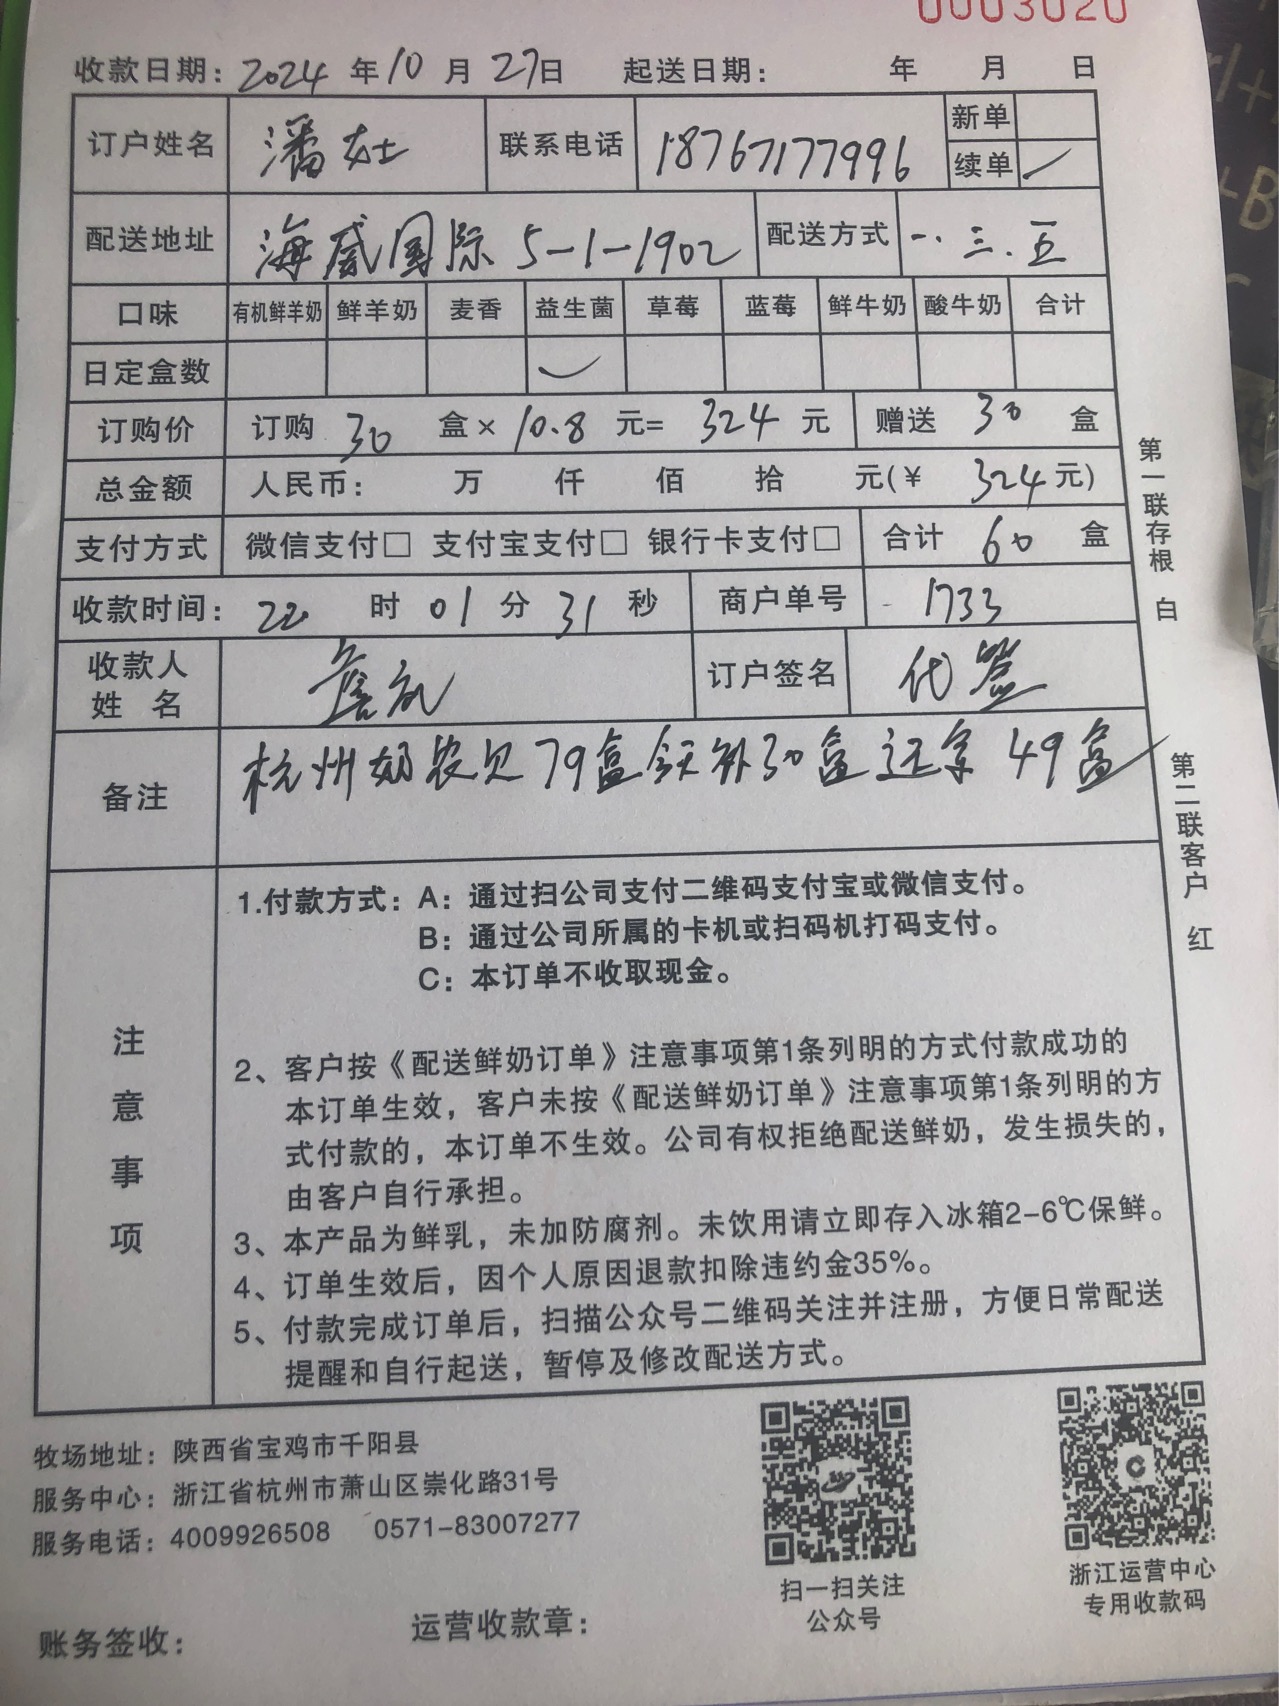 0003020
收款日期：2024年10月27日 起送日期： 年 月 日
订户姓名 潘女士 联系电话 18767177996 新单
续单 ✓
配送地址 海威国际 5-1-1902 配送方式 一.三.五
口味 有机鲜羊奶 鲜羊奶 麦香 益生菌 草莓 蓝莓 鲜牛奶 酸牛奶 合计
日定盒数 ✓
订购价 订购 30 盒× 10.8 元= 324 元 赠送 30 盒
总金额 人民币： 万 仟 佰 拾 元(¥ 324元)
支付方式 微信支付□ 支付宝支付□ 银行卡支付□ 合计 60 盒
收款时间：22 时 01 分 31 秒 商户单号 1733
收款人
姓 名 订户签名 代签
备注 杭州奶农欠79盒今天补30盒还余49盒
注意事项
1.付款方式：A：通过扫公司支付二维码支付宝或微信支付。
B：通过公司所属的卡机或扫码机打码支付。
C：本订单不收取现金。
2、客户按《配送鲜奶订单》注意事项第1条列明的方式付款成功的
本订单生效，客户未按《配送鲜奶订单》注意事项第1条列明的方
式付款的，本订单不生效。公司有权拒绝配送鲜奶，发生损失的，
由客户自行承担。
3、本产品为鲜乳，未加防腐剂。未饮用请立即存入冰箱2-6℃保鲜。
4、订单生效后，因个人原因退款扣除违约金35%。
5、付款完成订单后，扫描公众号二维码关注并注册，方便日常配送
提醒和自行起送，暂停及修改配送方式。
第一联存根 白
第二联客户 红
牧场地址：陕西省宝鸡市千阳县
服务中心：浙江省杭州市萧山区崇化路31号
服务电话：4009926508 0571-83007277
扫一扫关注
公众号
浙江运营中心
专用收款码
账务签收： 运营收款章：